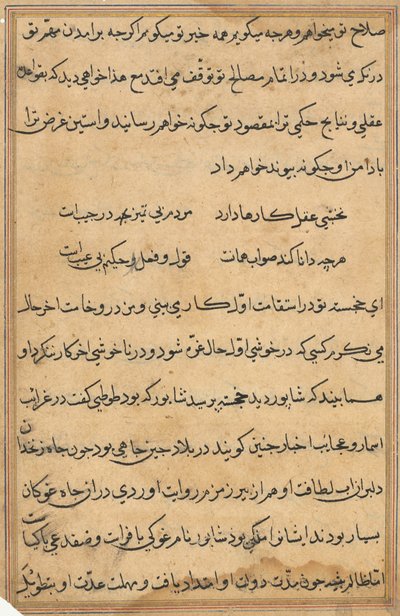 صلاح تو میخواهم و هرچه میکویم همه خیر تو میکویم اکرچه برامدن مهم تو
در نکری شود و در اتمام مصالح تو توقف می افتد مع هذا خواهی دید که بقوهاء
عقلی و نتایج حکمی ترا بمقصود تو چکونه خواهم رسانید و استین غرض ترا
بادامن او چکونه پیوند خواهم داد
نخشبی عقل کارها دارد مرد بی تمیز نه در جیب است
هرچه دانا کند صواب همانست قول و فعل و حکیم بی عیب است
ای خجسته تو در استقامت اول کار می بینی و من در وخامت اخر حال
می نکرم کسی که در خوشی اول حال غره شود و در ناخوشی اخر کار ننکرد او
همان بیند که شاپور دید خجسته پرسید شاپور که بود طوطی کفت در غرائب
اسمار و عجائب اخبار چنین کویند در بلاد چین چاهی بود چون چاه زنخدان
دلبران اب لطافت او هم از بیر زمزم روایت اوردی در ان چاه غوکان
بسیار بودند ایشانرا ملکی بود شاپور نام غوکی با فراست و ضفدعی باکیاست
اما ظالم پیشه چون مدت دولت او امتداد یافت و مهلت عدت او بتطویل